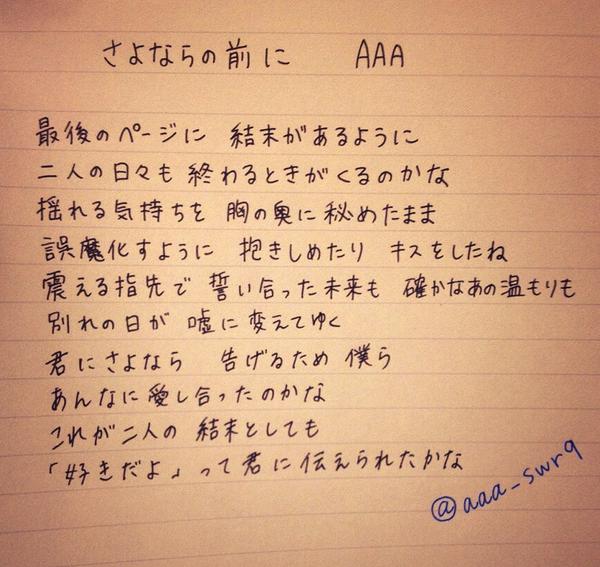 さよならの前に AAA
最後のページに 結末があるように
二人の日々も 終わるときがくるのかな
揺れる気持ちを 胸の奥に 秘めたまま
誤魔化すように 抱きしめたり キスをしたね
震える指先で 誓い合った未来も 確かなあの温もりも
別れの日が 嘘に変えてゆく
君にさよなら 告げるため 僕ら
あんなに愛し合ったのかな
これが二人の 結末としても
「好きだよ」って君に伝えられたかな
@aaa_swr9